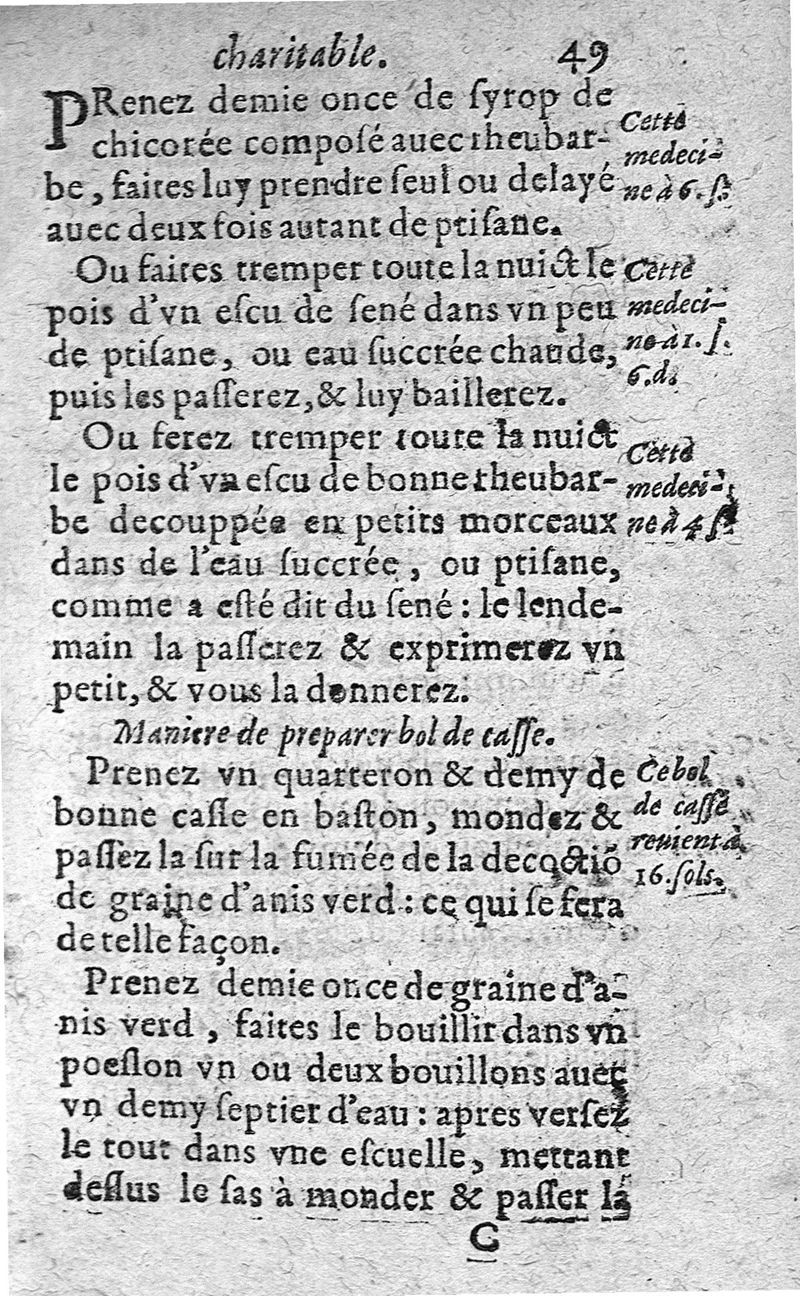 charitable. 49
PRenez demie once de ſyrop de
chicorée compoſé auec rheubar-
be, faites luy prendre ſeul ou delayé
auec deux fois autant de ptiſane.
Cette
medeci-
ne à 6. ſ.
Ou faites tremper toute la nuict le
pois d'vn eſcu de ſené dans vn peu
de ptiſane, ou eau ſuccrée chaude,
puis les paſſerez, & luy baillerez.
Cette
medeci-
ne à 1. ſ.
6. d.
Ou ferez tremper toute la nuict
le pois d'vn eſcu de bonne rheubar-
be decouppée en petits morceaux
dans de l'eau ſuccrée, ou ptiſane,
comme a eſté dit du ſené : le lende-
main la paſſerez & exprimerez vn
petit, & vous la donnerez.
Cette
medeci-
ne à 4 ſ.
Maniere de preparer bol de caſſe.
Prenez vn quarteron & demy de
bonne caſſe en baſton, mondez &
paſſez la ſur la fumée de la decoctiõ
de graine d'anis verd : ce qui ſe fera
de telle façon.
Ce bol
de caſſe
reuient à
16. ſols.
Prenez demie once de graine d'a-
nis verd, faites le bouillir dans vn
poeſlon vn ou deux bouillons auec
vn demy ſeptier d'eau : apres verſez
le tout dans vne eſcuelle, mettant
deſſus le ſas à monder & paſſer la
C